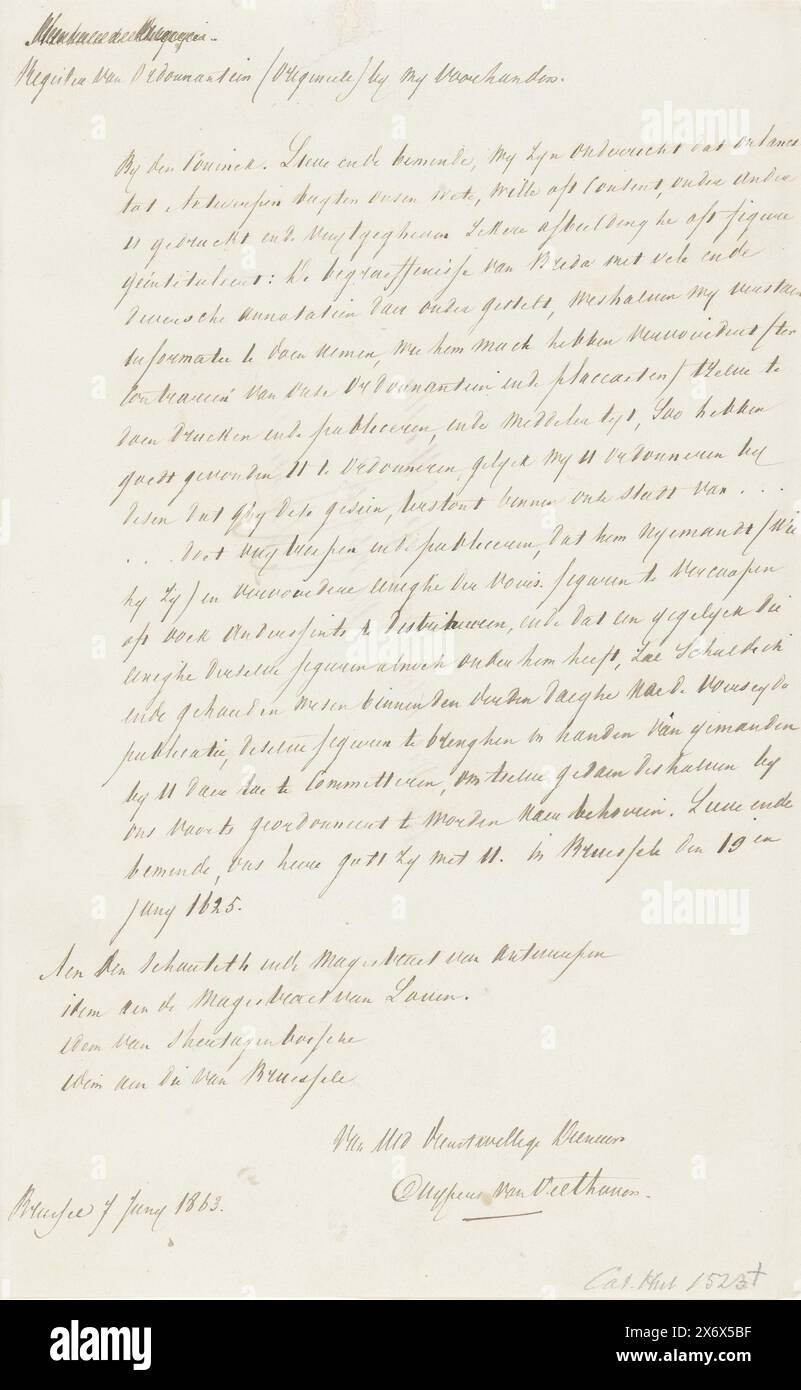 Register van Ordonnantien (Origineele) by my voorhanden.
By den Coninck. Lieve ende beminde, Wy zyn onderricht dat onlancx
tot Antwerpen buyten onsen wete, wille oft Consent, onder andere
is gedruckt ende uuytgegheven zekere afbeeldinghe oft figure
geintituleert: De begraeffenisse van Breda met vele ende
diversche annotatien daer onder gestelt, weshalven wy verstaen
informatie te doen nemen, wie hem mach hebben vervoirdert (ter
Contrarien van onse Ordonnantien ende placcaeten) tzelve te
doen drucken ende publiceren, ende middelen tyt, Soo hebben
goedt gevonden U te ordonneren, gelyck wy U ordonneren by
desen dat ghy dese gesien, terstont binnen onse stadt van . . .
. . . doet uuytroepen ende publiceren, dat hem nyemandt (wie
hy zy) en vervoirdere eneghe der voirs. figuren te vercoopen
oft oock anderssints te distribueren, ende dat een yegelyck die
eneghe derselve figuren alnoch onder hem heeft, zal schuldich
ende gehouden wesen binnen den derden daeghe naer de voirseyde
publicatie, deselve figuren te brenghen in handen van yemanden
by U daer toe te Committeren, om tselve gedaen deshalven by
ons voorts geordonneert te worden naer behooren. Lieve ende
beminde, ons heere godt zy met U. in Bruessele den 19 en
Juny 1625.
Aen den Schouteth ende Magistraet van Antwerpen
idem aen de Magistraet van Loven.
idem van Shertogenbossche
idem aen die van Bruessele
Van UEd Dienstwillige Dienaer
Cuypers van Velthoven.
Brussel 7 Juny 1863.
Cat. Mul 1523+
alamy
Image ID: 2X6X5BF
www.alamy.com